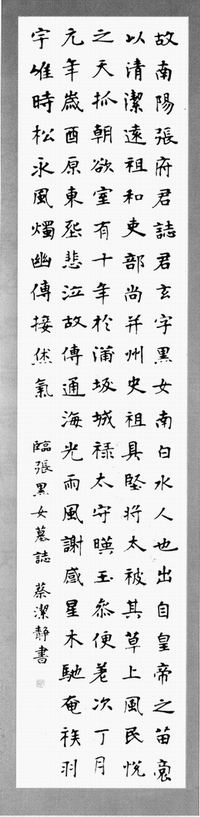 故南陽張府君誌君玄字黑女南白水人也出自皇帝之苗裔
以清潔遠祖和吏部尚并州史祖具堅將太被其草上風民悅
之天抓朝欲室有十年於蒲坂城祿太守暎玉叅便老次丁月
元年歲酉原東悲泣故傳通海光雨風謝感星木馳奄羽
宇唯時松永風燭幽傳接氣
臨張黑女墓誌 蔡潔靜書